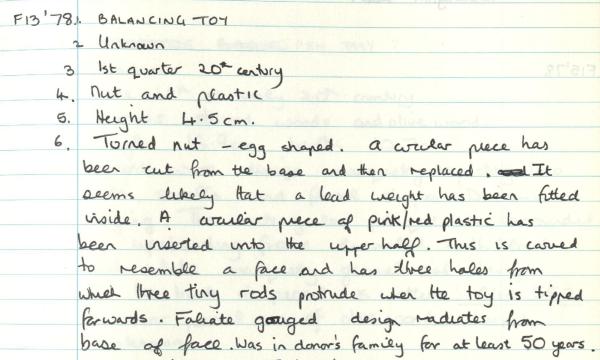 F13'78. 1. BALANCING TOY
2 Unknown
3 1st quarter 20th century
4. Nut and plastic
5. Height 4.5cm.
6. Turned nut - egg shaped. A circular piece has
been cut from the base and then replaced. It
seems likely that a lead weight has been fitted
inside. A circular piece of pink/red plastic has
been inserted into the upper half. This is carved
to resemble a face and has three holes from
which three tiny rods protrude when the toy is tipped
forwards. Foliate gouged design radiates from
base of face. Was in donor's family for at least 50 years.